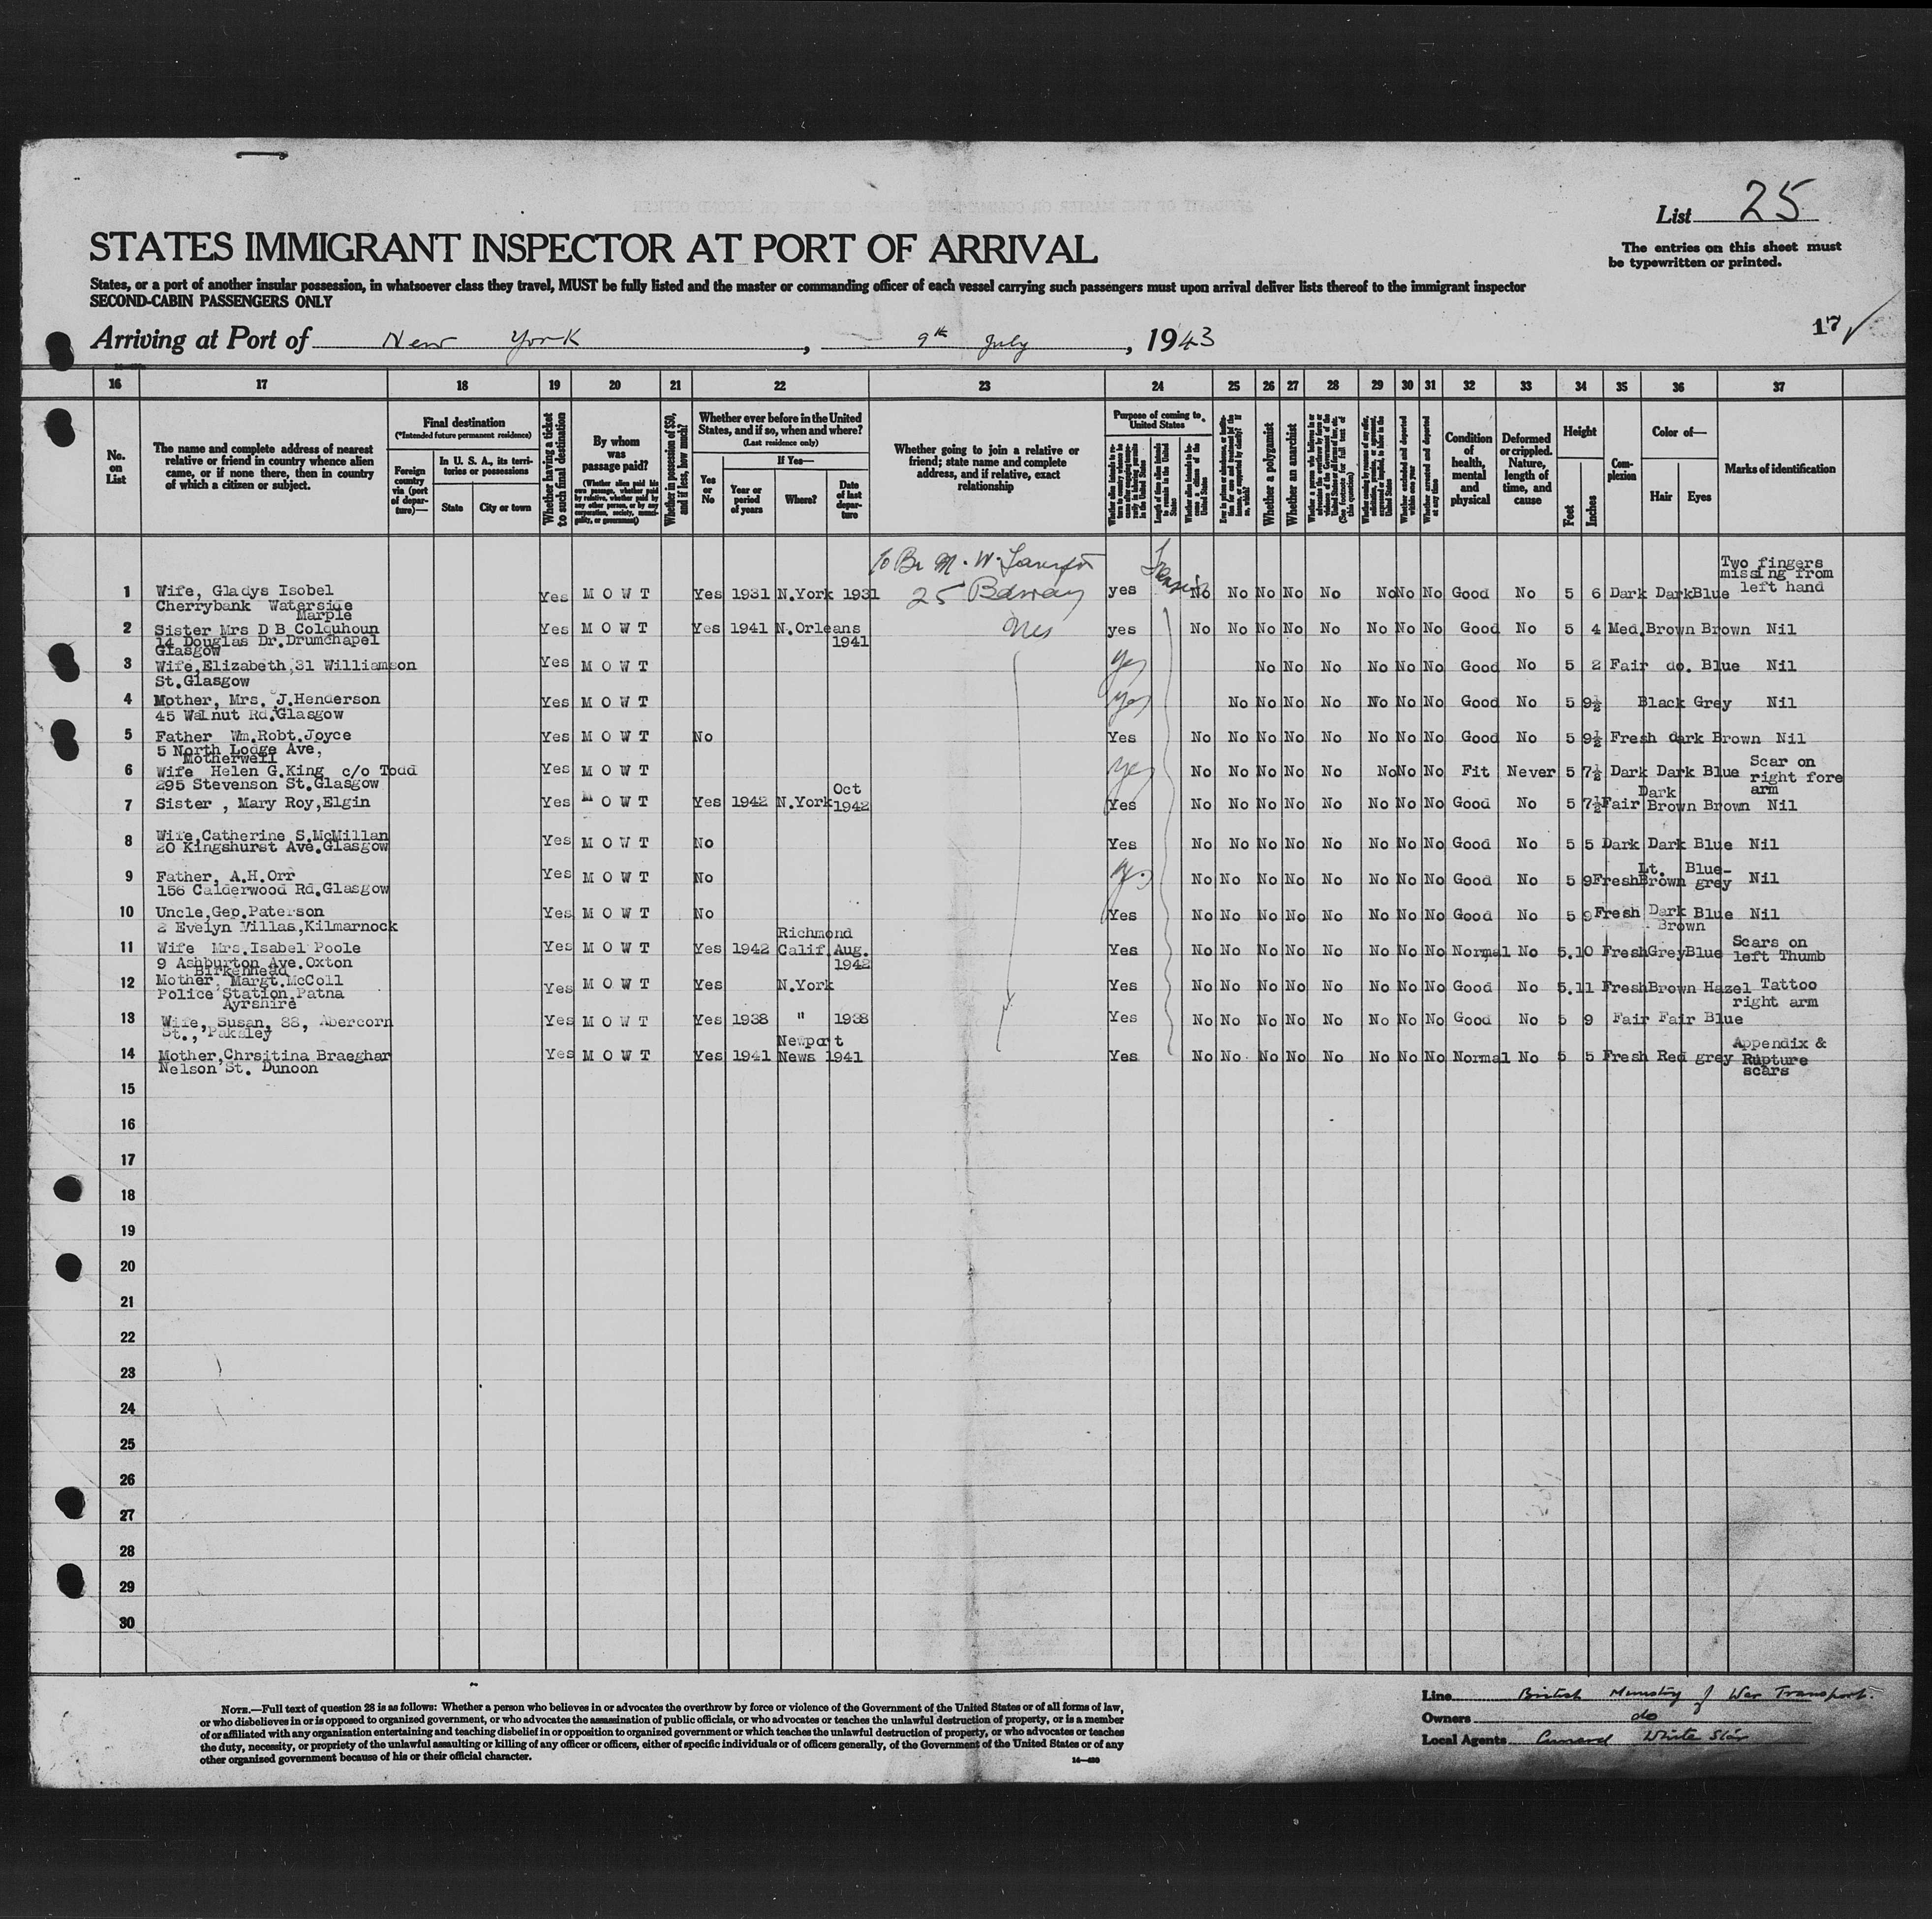 List 25
The entries on this sheet must
be typewritten or printed.
STATES IMMIGRANT INSPECTOR AT PORT OF ARRIVAL
States, or a port of another insular possession, in whatsoever class they travel, MUST be fully listed and the master or commanding officer of each vessel carrying such passengers must upon arrival deliver lists thereof to the immigrant inspector
SECOND-CABIN PASSENGERS ONLY
17
Arriving at Port of New York, 9th July, 1943
16 17 18 19 20 21 22 23 24 25 26 27 28 29 30 31 32 33 34 35 36 37
No. on List
The name and complete address of nearest relative or friend in country whence alien came, or if none there, then in country of which a citizen or subject.
Final destination
(*Intended future permanent residence)
Foreign country via (port of departure)—
In U. S. A., its territories or possessions
State
City or town
Whether having a ticket to such final destination
By whom was passage paid?
(Whether alien paid his own passage, whether paid by relative, whether paid by any other person, or by any corporation, society, municipality, or government)
Whether in possession of $50, and if less, how much?
Whether ever before in the United States, and if so, when and where?
(Last residence only)
Yes or No
If Yes—
Year or period of years
Where?
Date of last departure
Whether going to join a relative or friend; state name and complete address, and if relative, exact relationship
Purpose of coming to United States
Whether a polygamist
Whether an anarchist
Whether arrested and deported at any time
Condition of health, mental and physical
Deformed or crippled. Nature, length of time, and cause
Height
Feet
Inches
Complexion
Color of—
Hair
Eyes
Marks of identification
To Br M. W. 
25 Bdway
NYC
Transit
1 Wife, Gladys Isobel Yes M O W T Yes 1931 N.York 1931 yes No No No No No No No No Good No 5 6 Dark Dark Blue Two fingers missing from left hand
Cherrybank Waterside
Marple
2 Sister Mrs D B Colquhoun Yes M O W T Yes 1941 N.Orleans 1941 yes No No No No No No No No Good No 5 4 Med. Brown Brown Nil
14 Douglas Dr.Drumchapel
Glasgow
3 Wife,Elizabeth,31 Williamson Yes M O W T Yes No No No No No No Good No 5 2 Fair do. Blue Nil
St.Glasgow
4 Mother, Mrs. J.Henderson Yes M O W T Yes No No No No No No No Good No 5 9½ Black Grey Nil
45 Walnut Rd.Glasgow
5 Father Wm.Robt.Joyce Yes M O W T No Yes No No No No No No No No Good No 5 9½ Fresh dark Brown Nil
5 North Lodge Ave,
Motherwell
6 Wife Helen G.King c/o Todd Yes M O W T Yes No No No No No No No No Fit Never 5 7½ Dark Dark Blue Scar on right fore arm
295 Stevenson St.Glasgow
7 Sister , Mary Roy,Elgin Yes M O W T Yes 1942 N.York Oct 1942 Yes No No No No No No No No Good No 5 7½ Fair Dark Brown Brown Nil
8 Wife,Catherine S.McMillan Yes M O W T No Yes No No No No No No No No Good No 5 5 Dark Dark Blue Nil
20 Kingshurst Ave.Glasgow
9 Father, A.H.Orr Yes M O W T No Yes No No No No No No No No Good No 5 9 Fresh Lt. Brown Blue-grey Nil
156 Calderwood Rd.Glasgow
10 Uncle,Geo.Paterson Yes M O W T No Yes No No No No No No No No Good No 5 9 Fresh Dark Brown Blue Nil
2 Evelyn Villas,Kilmarnock
11 Wife Mrs.Isabel Poole Yes M O W T Yes 1942 Richmond Calif. Aug. 1942 Yes No No No No No No No No Normal No 5.10 Fresh Grey Blue Scars on left Thumb
9 Ashburton Ave.Oxton
Birkenhead
12 Mother, Margt.McColl Yes M O W T Yes N.York Yes No No No No No No No No Good No 5.11 Fresh Brown Hazel Tattoo right arm
Police Station,Patna
Ayrshire
13 Wife, Susan, 88, Abercorn Yes M O W T Yes 1938 " 1938 Yes No No No No No No No No Good No 5 9 Fair Fair Blue
St., Paksley
14 Mother,Chrsitina Braeghar Yes M O W T Yes 1941 Newport News 1941 Yes No No No No No No No No Normal No 5 5 Fresh Red grey Appendix & Rupture scars
Nelson St. Dunoon
15
16
17
18
19
20
21
22
23
24
25
26
27
28
29
30
NOTE.—Full text of question 28 is as follows: Whether a person who believes in or advocates the overthrow by force or violence of the Government of the United States or of all forms of law,
or who disbelieves in or is opposed to organized government, or who advocates the assassination of public officials, or who advocates or teaches the unlawful destruction of property, or is a member
of or affiliated with any organization entertaining and teaching disbelief in or opposition to organized government or which teaches the unlawful destruction of property, or who advocates or teaches
the duty, necessity, or propriety of the unlawful assaulting or killing of any officer or officers, either of specific individuals or of officers generally, of the Government of the United States or of any
other organized government because of his or their official character.
Line British Ministry of War Transport.
Owners do
Local Agents Cunard White Star